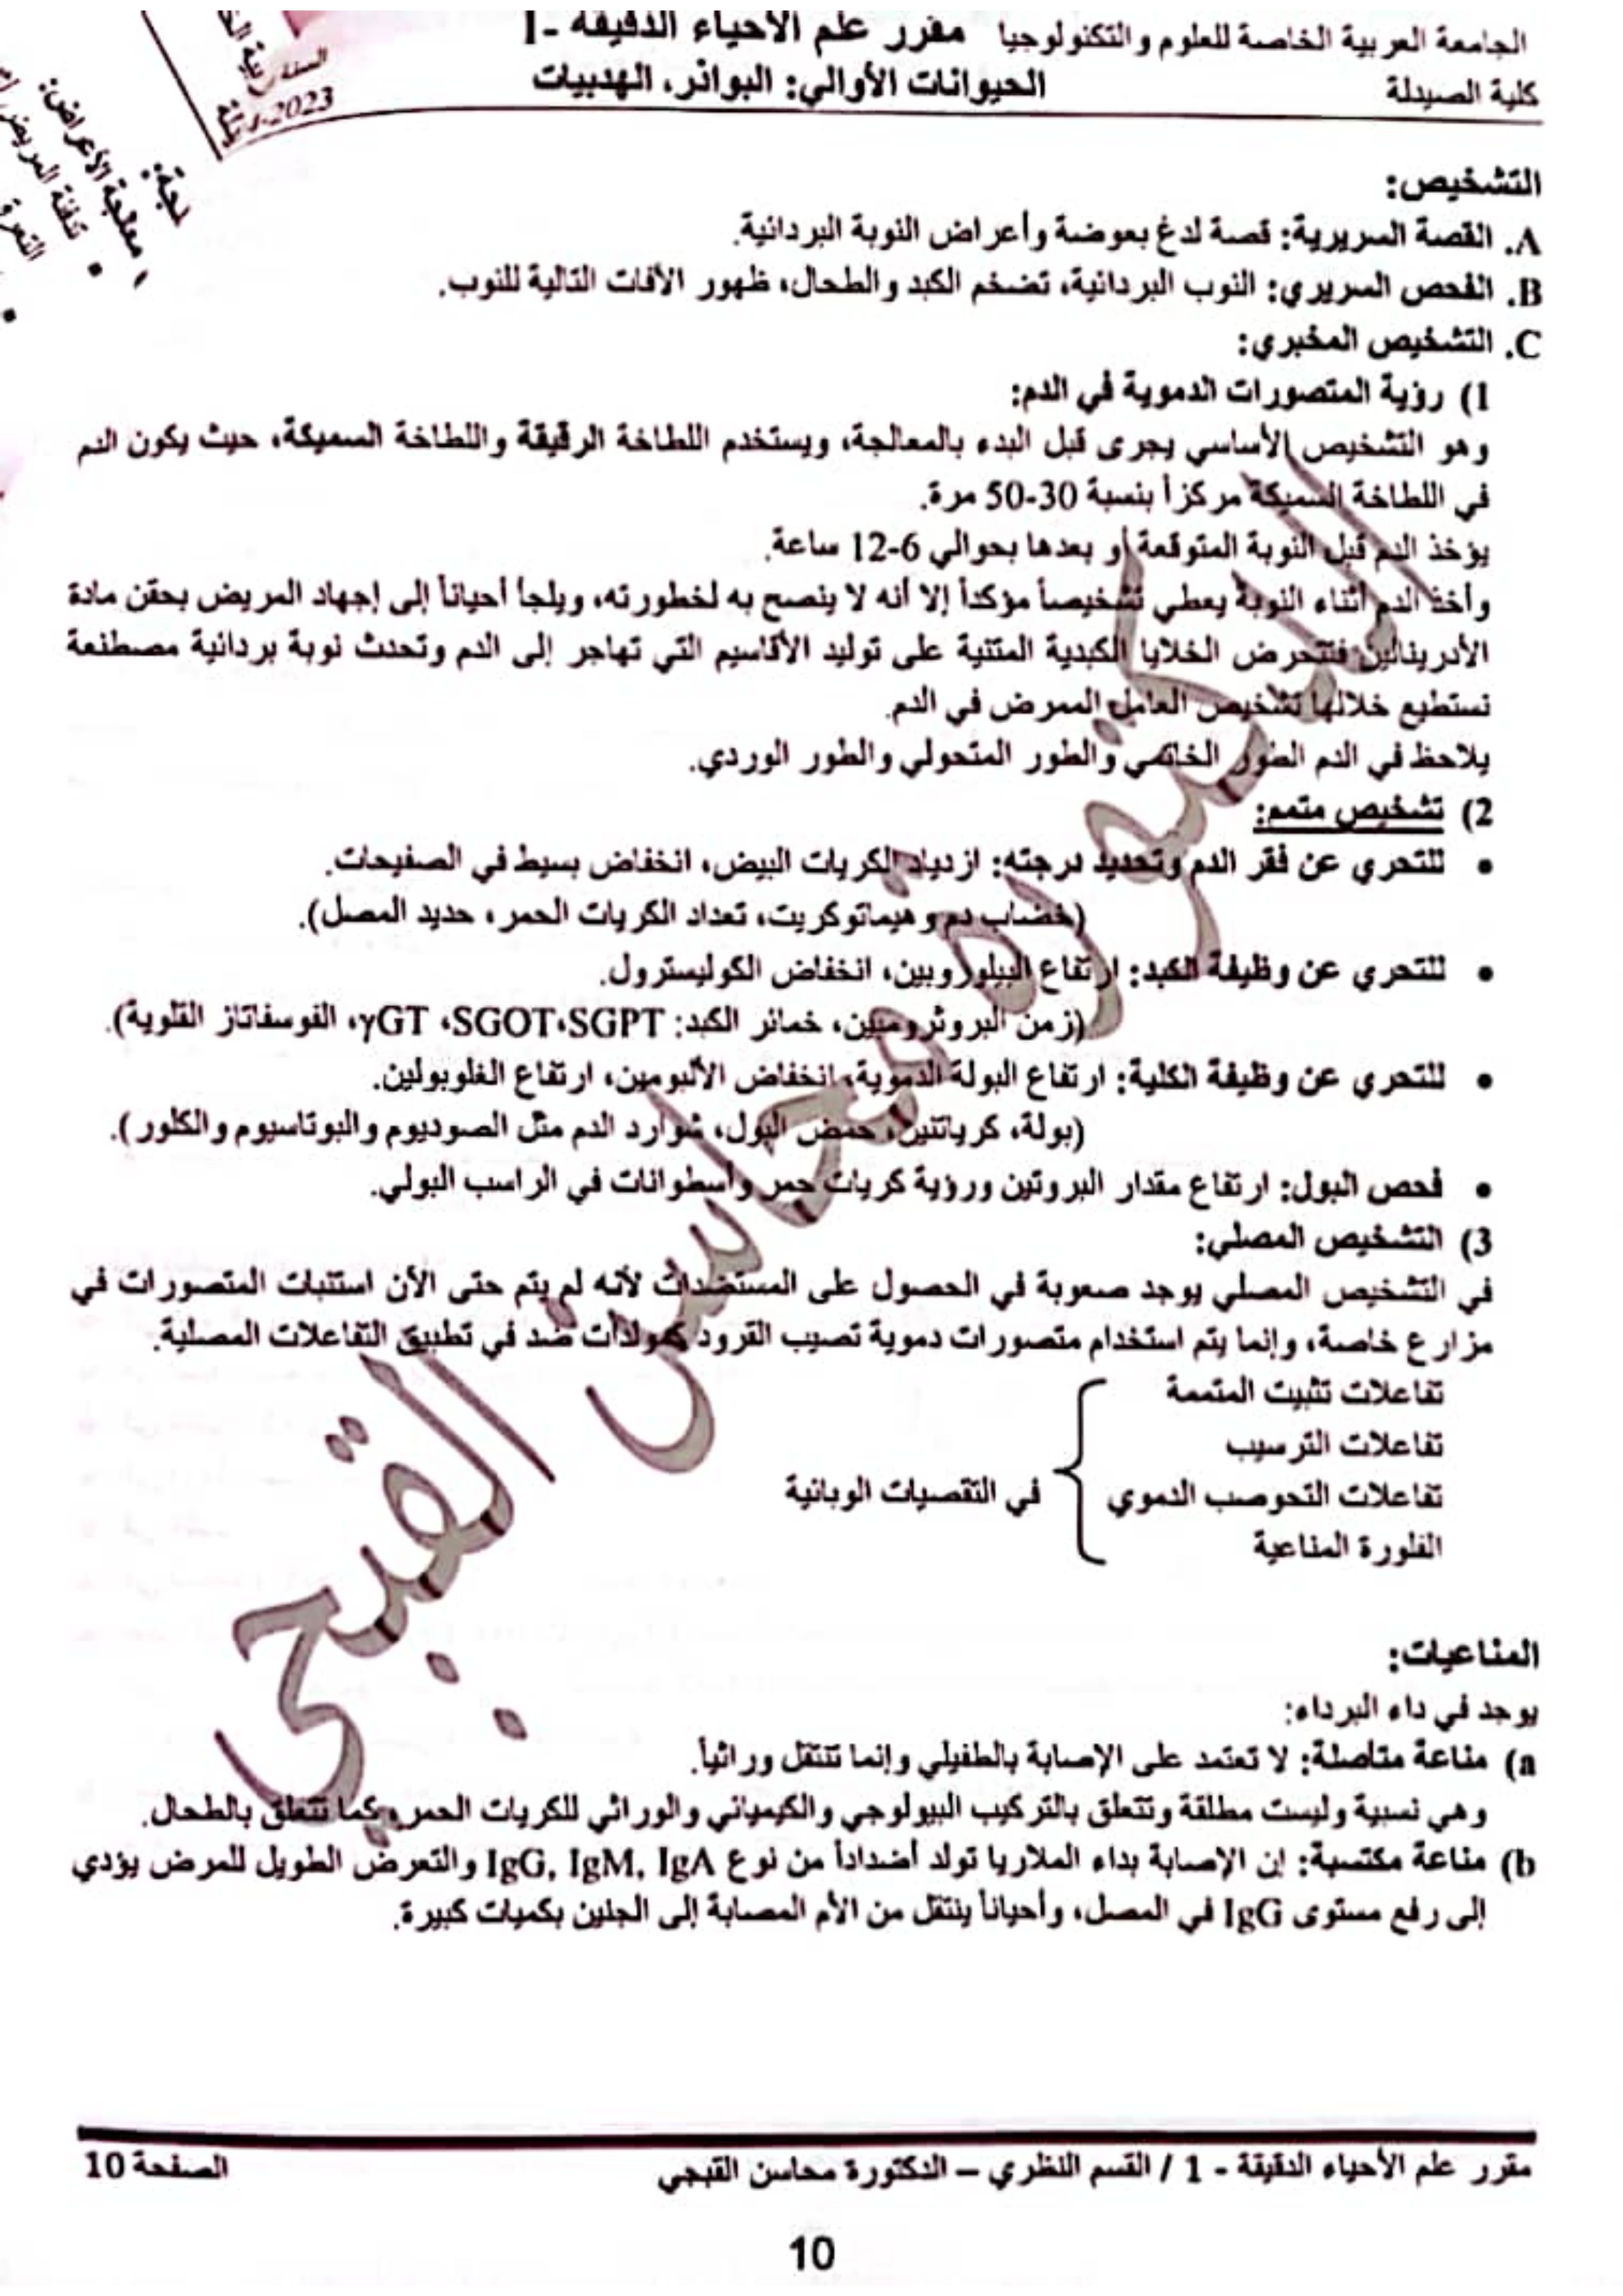 الجامعة العربية الخاصة للعلوم والتكنولوجيا مقرر علم الأحياء الدقيقة -1
كلية الصيدلة الحيوانات الأوالي: البوائر، الهدبيات
2023
معالجة الأعراض:
التشخيص:
A. القصة السريرية: قصة لدغ بعوضة وأعراض النوبة البردائية.
B. الفحص السريري: النوب البردائية، تضخم الكبد والطحال، ظهور الآفات التالية للنوب.
C. التشخيص المخبري:
1) رؤية المتصورات الدموية في الدم:
وهو التشخيص الأساسي يجرى قبل البدء بالمعالجة، ويستخدم اللطاخة الرقيقة واللطاخة السميكة، حيث يكون الدم
في اللطاخة السميكة مركزاً بنسبة 30-50 مرة.
يؤخذ الدم قبل النوبة المتوقعة أو بعدها بحوالي 6-12 ساعة.
وأخذ الدم أثناء النوبة يعطي تشخيصاً مؤكداً إلا أنه لا ينصح به لخطورته، ويلجأ أحياناً إلى إجهاد المريض بحقن مادة
الأدرينالين فتتحرض الخلايا الكبدية المتنية على توليد الأقاسيم التي تهاجر إلى الدم وتحدث نوبة بردائية مصطنعة
نستطيع خلالها تشخيص العامل الممرض في الدم.
يلاحظ في الدم الطور الخاتمي والطور المتحولي والطور الوردي.
2) تشخيص متمم:
• للتحري عن فقر الدم وتحديد درجته: ازدياد الكريات البيض، انخفاض بسيط في الصفيحات.
(خضاب دم وهيماتوكريت، تعداد الكريات الحمر، حديد المصل).
• للتحري عن وظيفة الكبد: ارتفاع البيلوروبين، انخفاض الكوليسترول.
(زمن البروثرومبين، خمائر الكبد: SGPT،SGOT، γGT، الفوسفاتاز القلوية).
• للتحري عن وظيفة الكلية: ارتفاع البولة الدموية، انخفاض الألبومين، ارتفاع الغلوبولين.
(بولة، كرياتنين، حمض البول، شوارد الدم مثل الصوديوم والبوتاسيوم والكلور).
• فحص البول: ارتفاع مقدار البروتين ورؤية كريات حمر وأسطوانات في الراسب البولي.
3) التشخيص المصلي:
في التشخيص المصلي يوجد صعوبة في الحصول على المستضدات لأنه لم يتم حتى الآن استنبات المتصورات في
مزارع خاصة، وإنما يتم استخدام متصورات دموية تصيب القرود كمولدات ضد في تطبيق التفاعلات المصلية.
تفاعلات تثبيت المتممة
تفاعلات الترسيب
تفاعلات التحوصب الدموي في التقصيات الوبائية
الفلورة المناعية
المناعيات:
يوجد في داء البرداء:
a) مناعة متأصلة: لا تعتمد على الإصابة بالطفيلي وإنما تنتقل وراثياً.
وهي نسبية وليست مطلقة وتتعلق بالتركيب البيولوجي والكيميائي والوراثي للكريات الحمر، كما تتعلق بالطحال.
b) مناعة مكتسبة: إن الإصابة بداء الملاريا تولد أضداداً من نوع IgG, IgM, IgA والتعرض الطويل للمرض يؤدي
إلى رفع مستوى IgG في المصل، وأحياناً ينتقل من الأم المصابة إلى الجنين بكميات كبيرة.
الدكتورة محاسن القبجي
مقرر علم الأحياء الدقيقة - 1 / القسم النظري – الدكتورة محاسن القبجي الصفحة 10
10